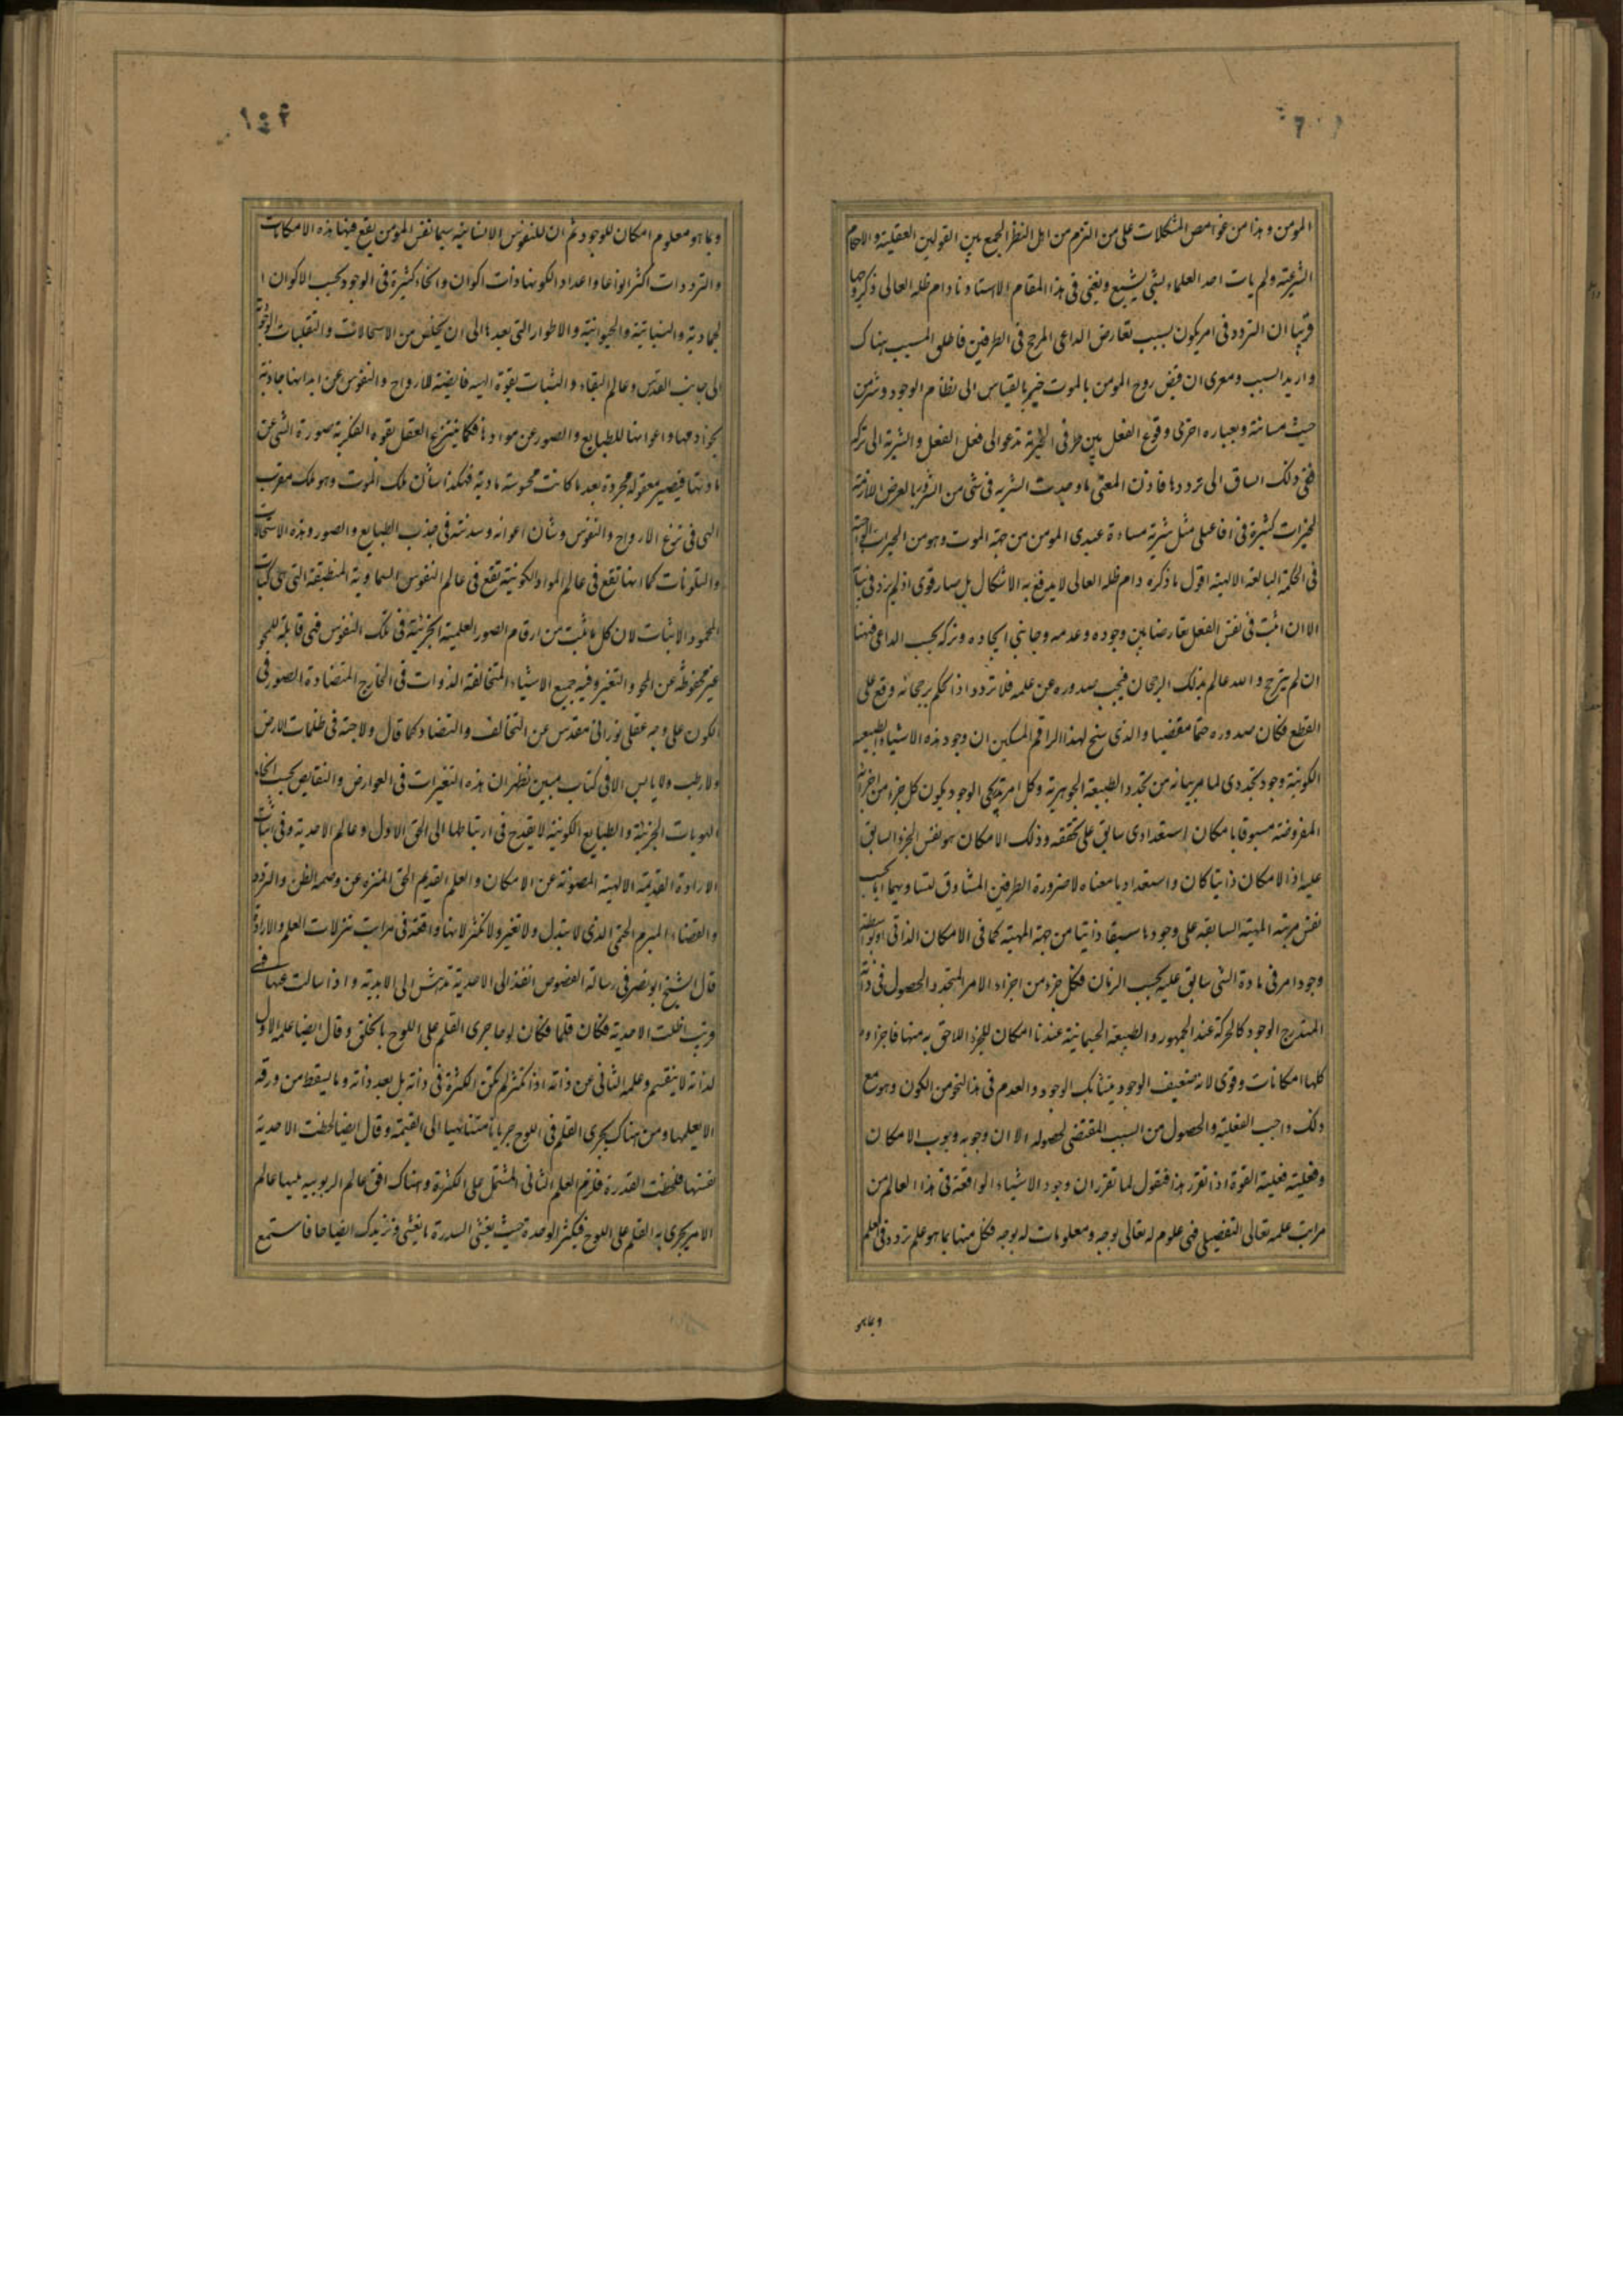 المومن و هذا من غوامض المشكلات على من التزم من اهل النظر الجمع بين القولين العقلية و الاحكام
الشرعية و لم يات احد العلماء بشی يشبع و يغنی فی هذا المقام الا استادنا دام ظله العالی ذكر وجها
قريبا ان التردد فی امر يكون بسبب تعارض الداعی المرجح فی الطرفين فاطلق المسبب هناك
و اريد السبب و مغزی ان قبض روح المومن بالموت خير بالقياس الی نظام الوجود و شر من
حيث مسائته و بعباره اخری وقوع الفعل بين طرفی الخيرية تدعو الی فعل الفعل و الشرية الی تركه
ففی ذلك انساق الی تردد ما فاذن المعنی ما وجدت الشريه فی شی من الشرور بالعرض اللازمة
لخيرات كثيرة فی افاعيلی مثل شرية مساءة عبدی المومن من جهة الموت و هو من الخيرات الواجبة
فی الحكمة البالغة الالهية اقول ما ذكره دام ظله العالی لا يدفع به الاشكال بل صار قوی اذ لم يزد فی بيانه
الا ان اثبت فی نفس الفعل تعارضا بين وجوده و عدمه و جانبی ايجاده و تركه بحسب الداعی فهنا
ان لم يترجح و الله عالم بذلك الرجحان فيجب صدوره عن علمه فلا تردد اذ الحكم برجحانه وقع علی
القطع فكان صدوره حتما مقضيا و الذی سنح لهذا الراقم المسكين ان وجود هذه الاشياء الطبيعيه
الكونية وجود تجددی لما مر بيانه من تجدد الطبيعة الجوهرية و كل امر تدريجی الوجود يكون كل جزء من اجزائه
المفروضة مسبوقا بامكان استعدادی سابق علی تحققه و ذلك الامكان هو نفس الجزء السابق
عليه اذ الامكان ذاتيا كان و استعداديا معناه لا ضرورة الطرفين المشاوق لتساويهما اما بحسب
نفس مرتبة المهية السابقة علی وجودها سبقا ذاتيا من جهة المهية كما فی الامكان الذاتی او بواسطة
وجود امر فی مادة الشی سابق عليه بحسب الزمان فكل جزء من اجزاء الامر المتجدد الحصول فی ذاته
المتدرج الوجود كالحركة عند الجمهور و الطبيعة الجسمانية عندنا امكان للجزء اللاحق به منها فاجزاوه
كلها امكانات و قوی لانه ضعيف الوجود يتشابك الوجود و العدم فی هذا النحو من الكون و هو مع
ذلك واجب الفعلية و الحصول من السبب المقتضی لحصوله الا ان وجوبه وجوب الامكان
و فعليته فعلية القوة اذا تقرر هذا فنقول لما تقرر ان وجود الاشياء الواقعة فی هذا العالم من
مراتب علمه تعالی التفصيلی فهی علوم له تعالی بوجه و معلومات له بوجه فكل منها بما هو علم تردد فی العلم
و بما هو
و بما هو معلوم امكان للوجود ثم ان للنفوس الانسانية سيما نفس المومن يقع فيها هذه الامكانات
و الترددات اكثر انواعا و اعدادا لكونها ذات اكوان و انحاء كثيرة فی الوجود بحسب الاكوان ا
لجمادية و النباتية و الحيوانية و الاطوار التی بعدها الی ان يخلص من الاستحالات و التقلبات الوجودية
الی جانب القدس و عالم البقاء و الثبات بقوة الهيه قابضة للارواح و النفوس عن ابدانها جاذبة
بخوادمها و اعوانها للطبايع و الصور عن موادها فكما ينتزع العقل بقوه الفكرية صورة الشی عن
مادتها فيصير معقوله مجردة بعد ما كانت محسوسة مادية فهكذا شأن ملك الموت و هو ملك مقرب
الهی فی نزع الارواح و النفوس و شأن اعوانه و سدنته فی جذب الطبايع و الصور و هذه الاستحالات
و التلونات كما انها تقع فی عالم المواد الكونية تقع فی عالم النفوس السماوية المنطبقة التی هی كتاب
المحو و الاثبات لان كل ما ثبت من ارقام الصور العلمية الجزئية فی تلك النفوس فهی قابلة للمحو
غير محفوظة عن المحو و التغير و فيه جميع الاشياء المتخالفة الذوات فی الخارج المتضادة الصور فی
الكون علی وجه عقلی نورانی مقدس عن التخالف و التضاد كما قال و لا حبة فی ظلمات الارض
و لا رطب و لا يابس الا فی كتاب مبين فظهر ان هذه التغيرات فی العوارض و النقايص بحسب انحاء
الهويات الجزئية و الطبايع الكونية لا يقدح فی ارتباطها الی الحق الاول و عالم الاحدية و فی اثبات
الارادة القديمة الالهية المصونة عن الامكان و العلم القديم الحق المنزه عن وصمة الظن و التردد
و القضاء المبرم الحتمی الذی لا يتبدل و لا تغير و لا تكثر لانها واقعة فی مراتب تنزلات العلم و الارادة
قال الشيخ ابو نصر فی رسالة الفصوص انفذ الی الاحدية تدهش الی الابدية و اذا سالت عنها فهی
قريب اظلت الاحدية فكان قلما فكان لوحا جری القلم علی اللوح بالخلق و قال ايضا علمه الاول
لذاته لا ينقسم و علمه الثانی عن ذاته اذا تكثر لم تكن الكثرة فی ذاته بل بعد ذاته و ما يسقط من ورقه
الا يعلمها و من هناك يجری القلم فی اللوح جريانا متناهيا الی القيمة و قال ايضا لحظت الاحدية
نفسها فلحظت القدرة فلزم العلم الثانی المشتمل علی الكثرة و هناك افق عالم الربوبيه يليها عالم
الامر يجری به القلم علی اللوح فيكثر الوحدة حيث يغشی السدرة ما يغشی و نزيدك ايضاحا فاستمع